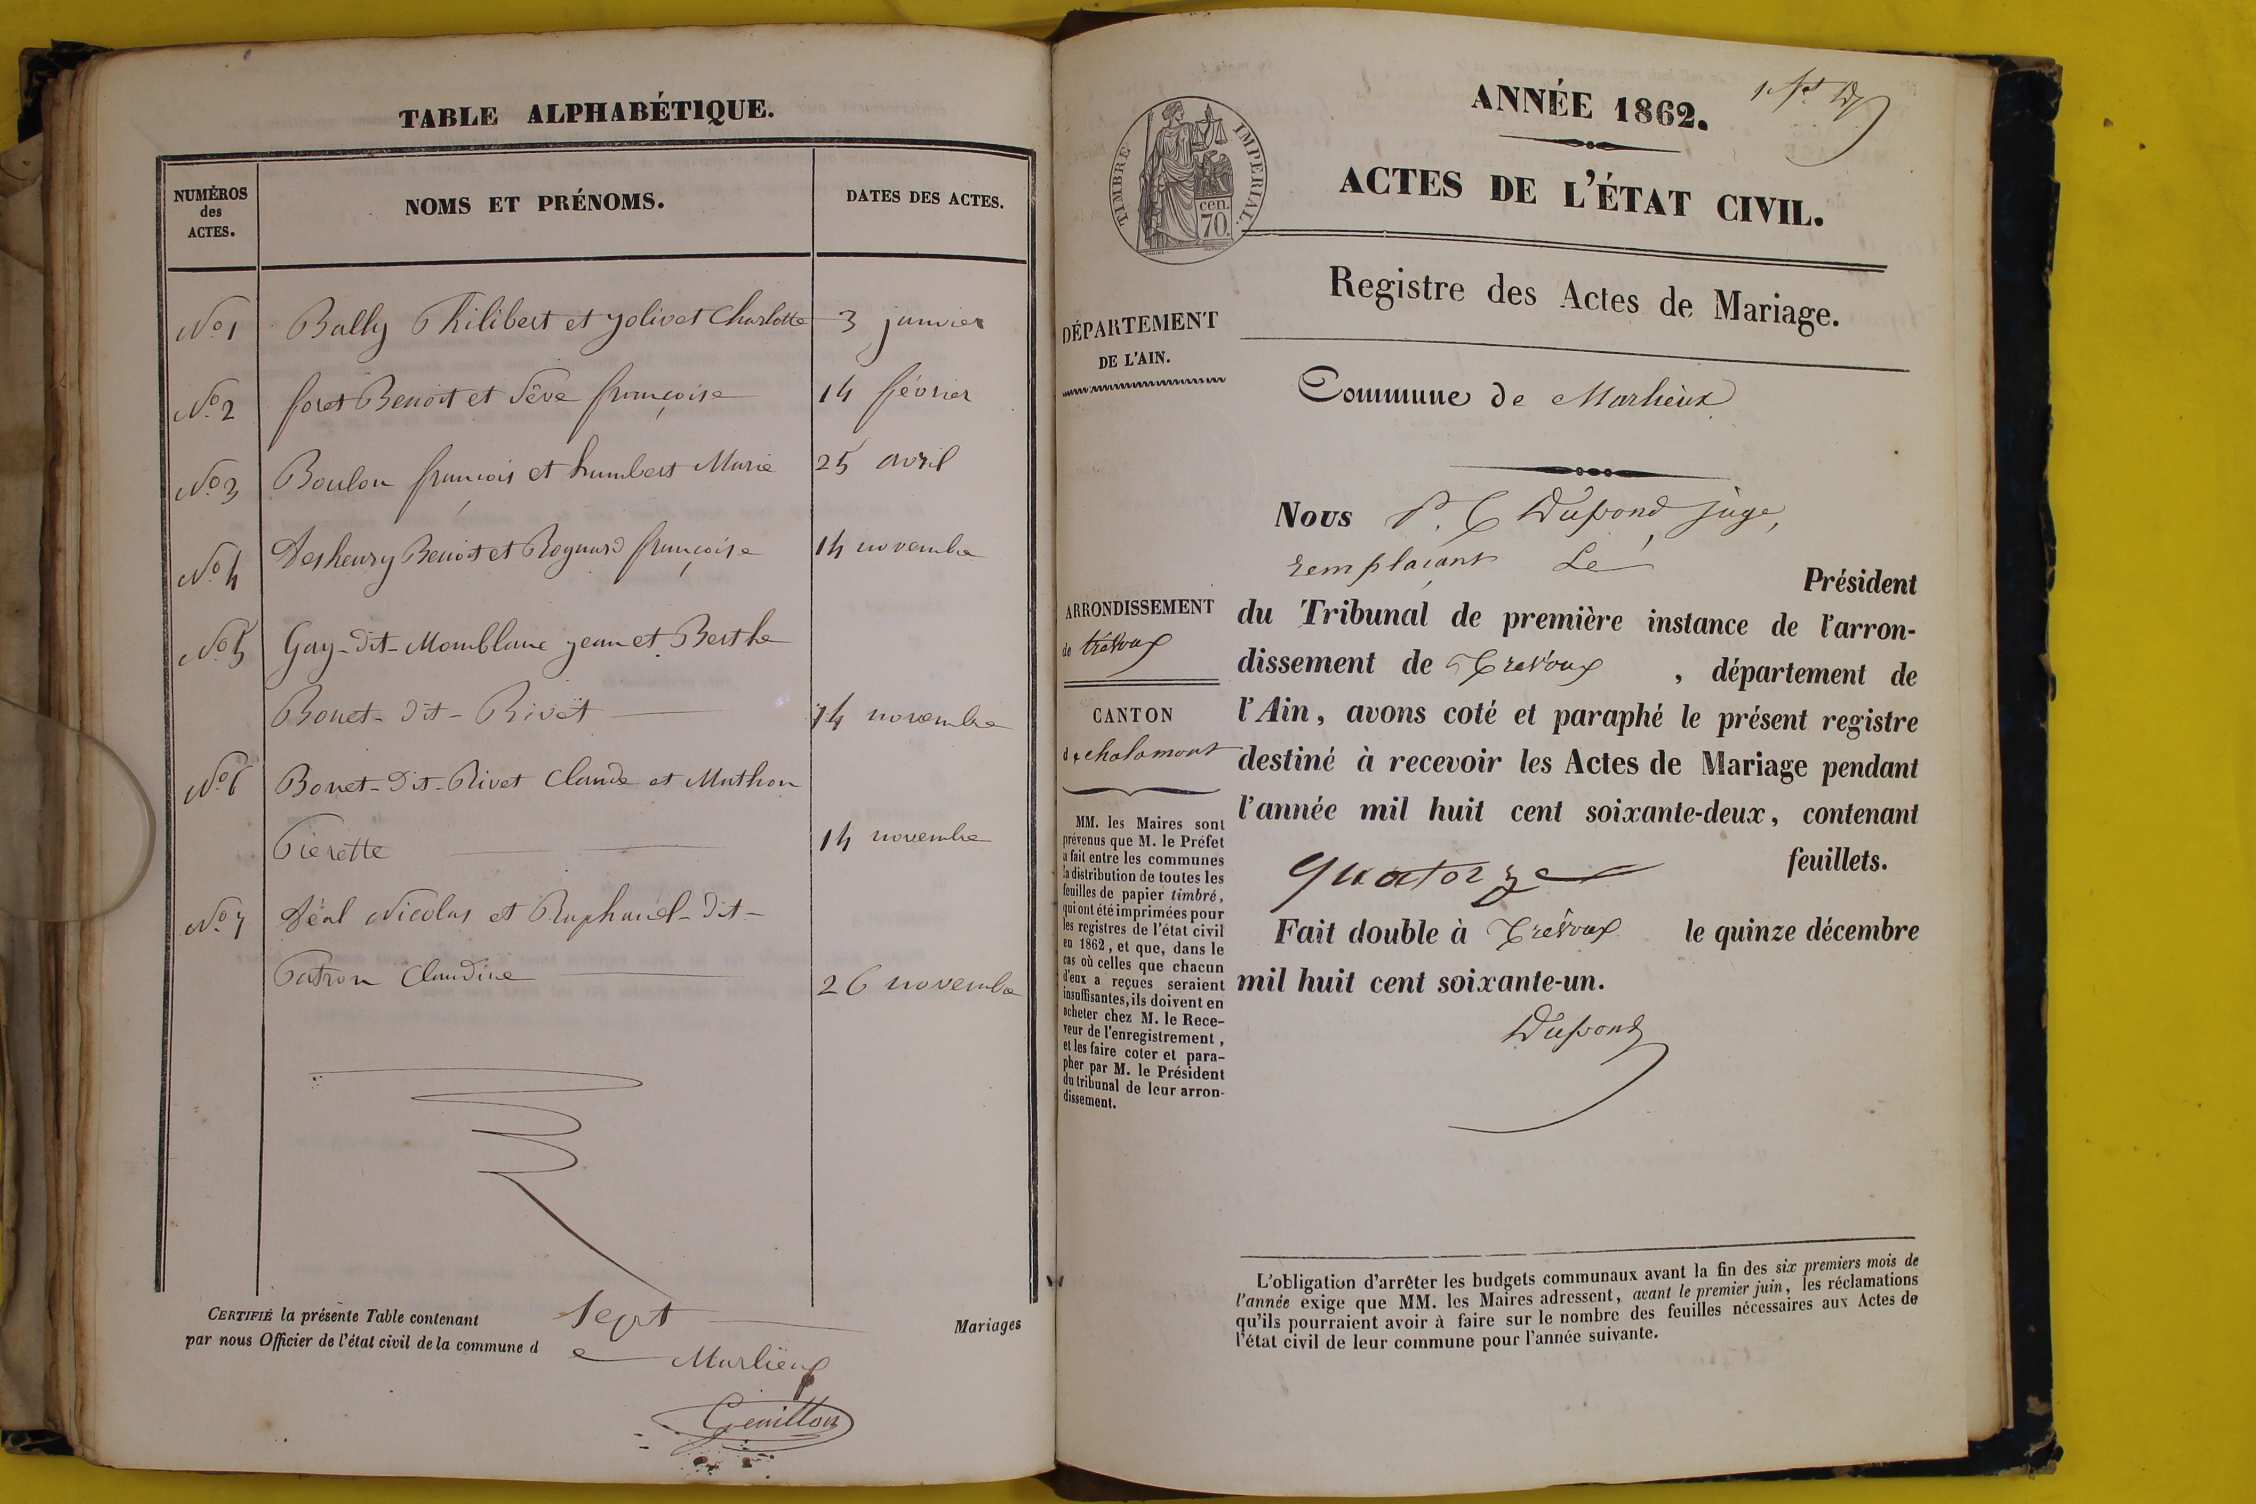 TABLE ALPHABÉTIQUE.
NUMÉROS
des
ACTES.
NOMS ET PRÉNOMS.
DATES DES ACTES.
No 1 Bally Philibert et Jolivet Charlotte 3 janvier
No 2 foret Benoit et Sève françoise 14 février
No 3 Boulon françois et humbert Marie 25 avril
No 4 Desheury Benoit et Roguard françoise 14 novembre
No 5 Gay-dit-Momblanc jean et Berthe
Bonet-dit-Rivet 14 novembre
No 6 Bonet-dit-Rivet Claude et Mathon
Pierette 14 novembre
No 7 Déal Nicolas et Raphaël-dit-
Patron Claudine 26 novembre
CERTIFIÉ la présente Table contenant Sept Mariages
par nous Officier de l'état civil de la commune de Marlieux
Genillon
1er
ANNÉE 1862.
TIMBRE IMPERIAL.
cen.
70.
ACTES DE L'ÉTAT CIVIL.
Registre des Actes de Mariage.
DÉPARTEMENT
DE L'AIN.
Commune de Marlieux
Nous P. C Dupond juge,
remplaçant Le Président
ARRONDISSEMENT
de trévoux
CANTON
de chalamont
MM. les Maires sont
prévenus que M. le Préfet
a fait entre les communes
la distribution de toutes les
feuilles de papier timbré,
qui ont été imprimées pour
les registres de l'état civil
en 1862, et que, dans le
cas où celles que chacun
d'eux a reçues seraient
insuffisantes, ils doivent en
acheter chez M. le Rece-
veur de l'enregistrement,
et les faire coter et para-
pher par M. le Président
du tribunal de leur arron-
dissement.
du Tribunal de première instance de l'arron-
dissement de Trévoux, département de
l'Ain, avons coté et paraphé le présent registre
destiné à recevoir les Actes de Mariage pendant
l'année mil huit cent soixante-deux, contenant
quatorze feuillets.
Fait double à Trévoux le quinze décembre
mil huit cent soixante-un.
Dupond
L'obligation d'arrêter les budgets communaux avant la fin des six premiers mois de
l'année exige que MM. les Maires adressent, avant le premier juin, les réclamations
qu'ils pourraient avoir à faire sur le nombre des feuilles nécessaires aux Actes de
l'état civil de leur commune pour l'année suivante.